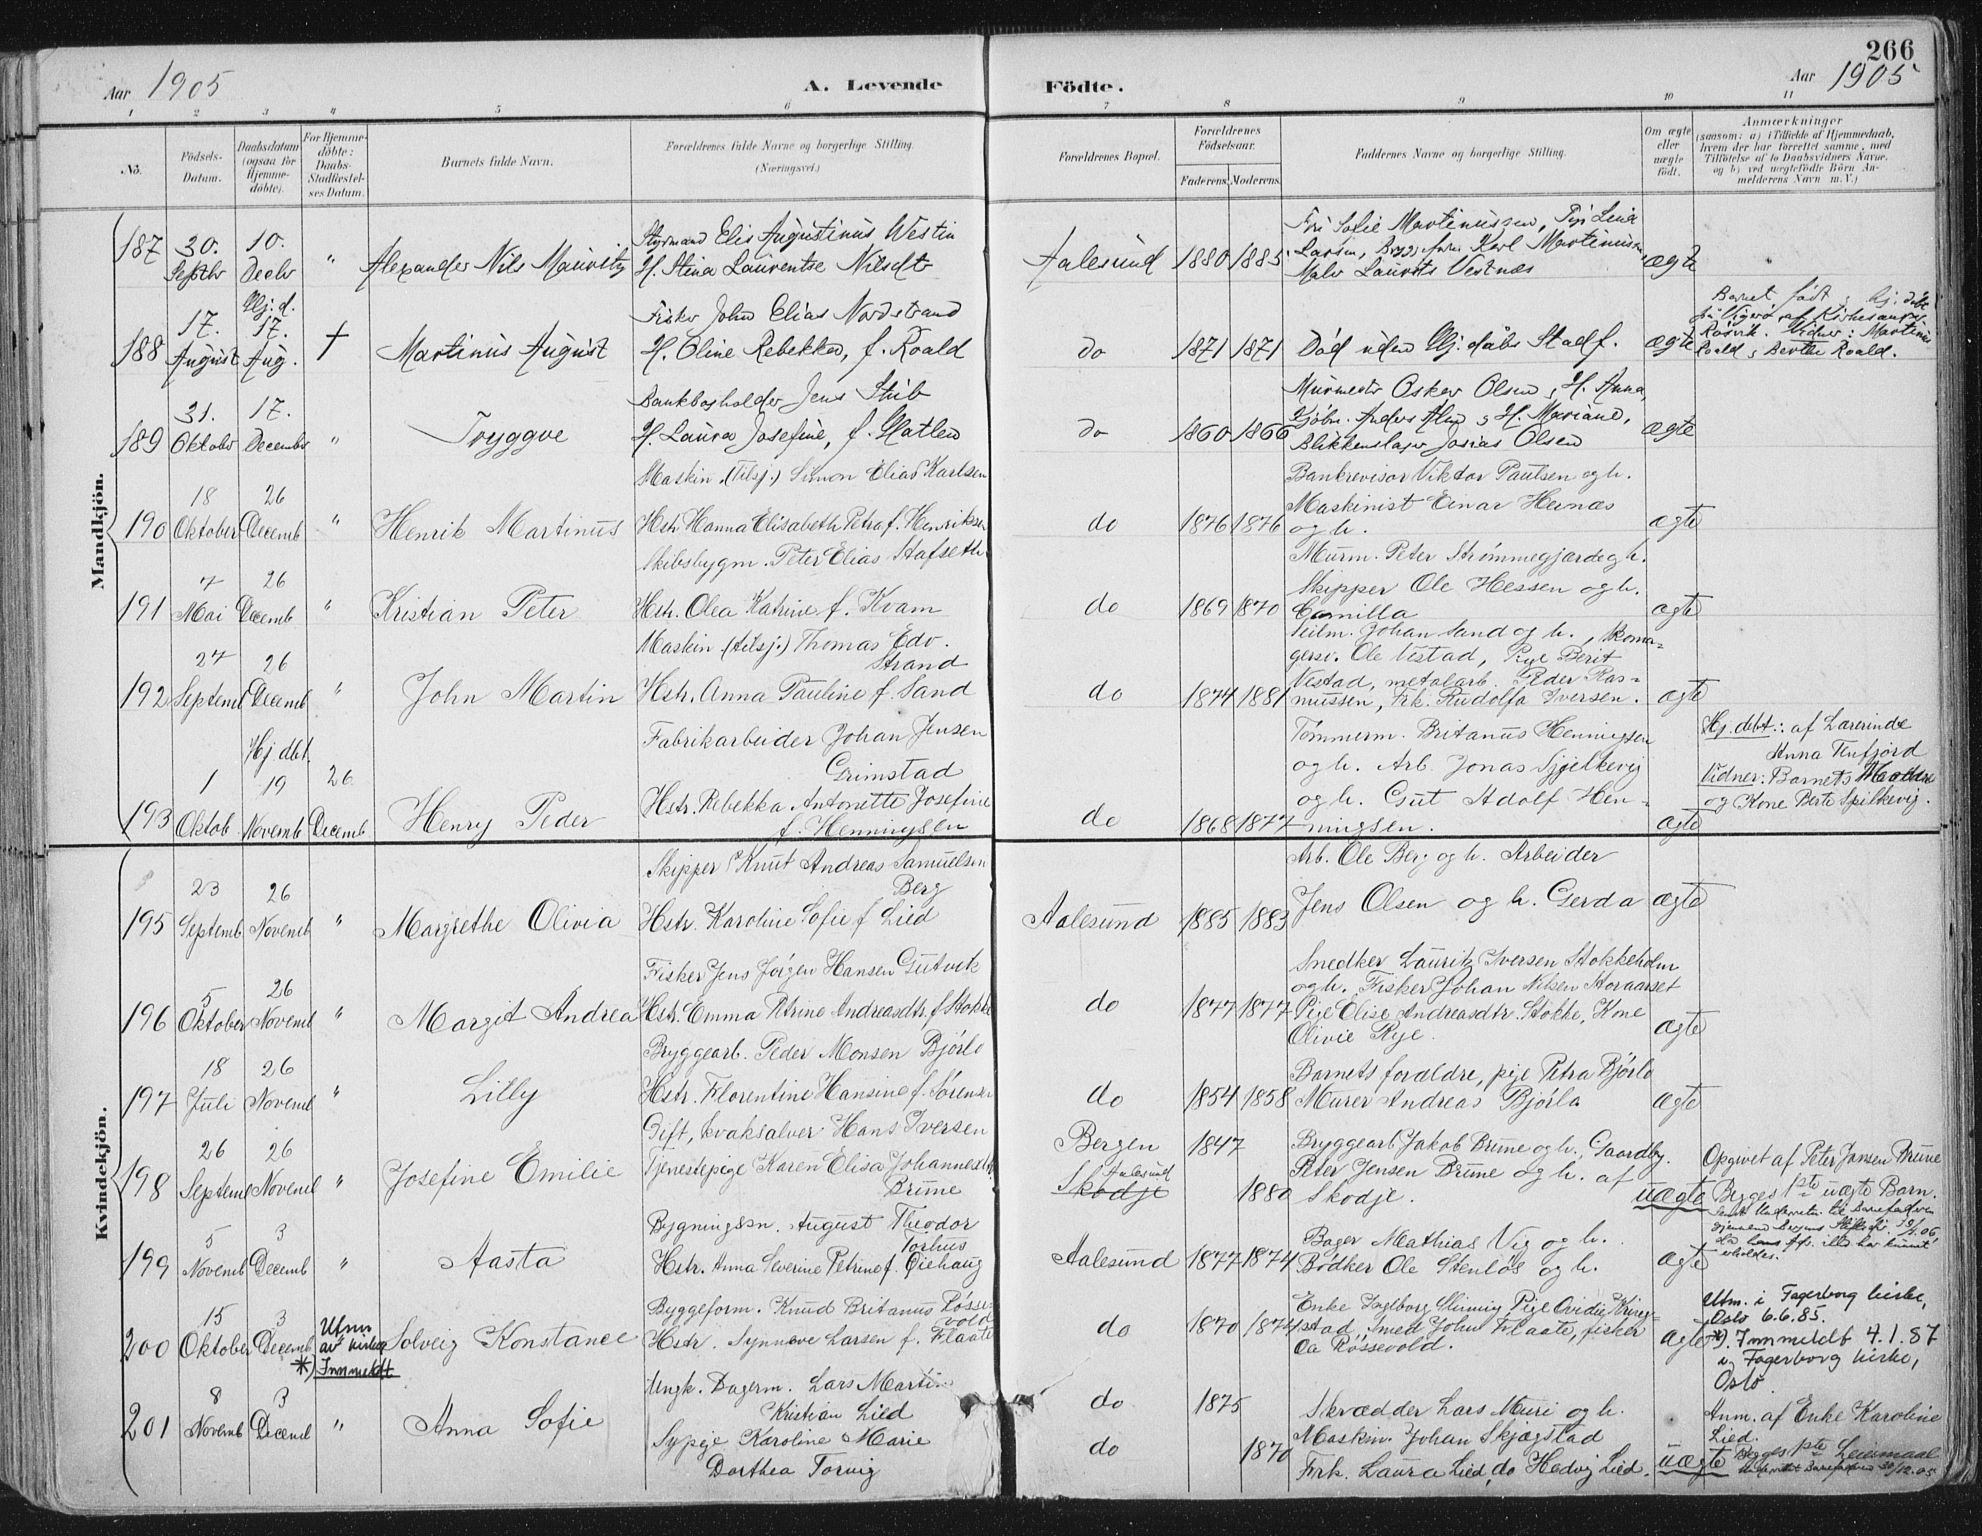 266
Aar 1905
A. Levende
Födte.
Aar 1905
1 2 3 4 5 6 7 8 9 10 11
No.
Födsels-Datum.
Daabsdatum (ogsaa for Hjemme-döbte).
For Hjemme-döbte: Daabs-Stadfæstel-ses Datum.
Barnets fulde Navn.
Forældrenes fulde Navne og borgerlige Stilling.
(Næringsvei.)
Forældrenes Bopæl.
Forældrenes Födselsaar.
Faderens. Moderens.
Faddernes Navne og borgerlige Stilling.
Om ægte eller uægte födt.
Anmærkninger
(saasom: a) i Tilfælde af Hjemmedaab, hvem der har forrettet samme, med Tilföielse af to Daabsvidners Navne, og b) ved uægtefödte Börn An-melderens Navn m. V.)
Mandkjön.
187 30. Septbr 10. Decbr " Alexander Nils Mauritz
Styrmand Elis Augustinus Westin
H. Stina Laurentse Nilsdtr
Aalesund 1880 1885
Fru Sofie Martinussen, Pige Lina
Larsen, Karl Martinussen,
Laurits Vestnæs
ægte
188 17. August Hj. d. 17. Aug. † Martinus August
Fisker John Elias Nordstrand
H. Oline Rebekka, f. Roald
do 1871 1871 Död uden Hj. dåbs Stadf. ægte
Barnet födt & hj. döbt
Vigerö af Kirkesanger
Rösvik. Vidner: Martinus
Roald & Berthe Roald.
189 31. Oktobr 17. Decembr " Tryggve
Bankbogholder Jens Stub
H. Laura Josefine, f. Hatlen
do 1860 1866
Murmester Oskar Olsen & H. Anna,
Kjöbm. Anders Alm & H. Mariane,
Blikkenslager Josias Olsen
ægte
190 18 Oktober 26 Decemb " Henrik Martinus
Maskin. (Tilsj.) Simon Elias Karlsen
Hstr. Hanna Elisabeth Petra f. Henriksen
do 1876 1876
Bankrevisor Viktor Paulsen og h.
Maskinist Einar Hernæs
og h.
Murm. Peter Strømmegjærde og h.
ægte
191 7 Mai 26 Decemb " Kristian Peter
Skibsbygm. Peter Elias Stafseth
Hstr. Olea Katrine f. Kvam
do 1869 1870
Skipper Ole Hessen og h.
Camilla
ægte
192 27 Septemb 26 Decemb " John Martin
Maskin (tilsj.) Thomas Edv.
Strand
Hstr. Anna Pauline f. Sand
do 1874 1881
Seilm. Johan Sand og h., Roma-
gersv. Ole Vestad, Pige Berit
Vestad, metalarb. Peder Ras-
mussen, Frk. Rudolfa Iversen.
ægte
193 1 Oktob. Hj. dbt. 19 Novemb 26 Decemb Henry Peder
Fabrikarbeider Johan Jensen
Grimstad
Hstr. Rebekka Antonette Josefine
f. Henningsen
do 1868 1877
Tömmerm. Britanus Henningsen
og h. Arb. Jonas Spjelkevig
og h. Gut Adolf Hen-
ningsen.
ægte
Hj. debt: af Lærerinde
Anna Tenfjord
Vidner: Barnets Moder
og Kone Berte Spilkevig.
Kvindekjön.
195 23 Septemb 26 Novemb " Margrethe Olivia
Skipper Knut Andreas Samuelsen
Berg
Hstr. Karoline Sofie f Lied
Aalesund 1885 1883
Arb. Ole Berg og h. Arbeider
Jens Olsen og h. Gerda
ægte
196 5 Oktober 26 Novemb " Margit Andrea
Fisker Jens Jörgen Hansen Gutvik
Hstr. Emma Petrine Andreasdtr. f. Stokke
do 1877 1877
Snedker Lauritz Iversen Stokkeholm
og h. Fisker Johan Nilsen Storaarset
Pige Elise Andreasdtr. Stokke, Kone
Olivie Rye.
ægte
197 18 Juli 26 Novemb " Lilly
Bryggearb. Peder Monsen Bjørlo
Hstr. Florentine Hansine f. Sørensen
do 1854 1858
Barnets forældre, pige Petra Bjørlo
Murer Andreas Bjørlo
ægte
198 26 Septemb 26 Novemb " Josefine Emilie
Gift, kvaksalver Hans Iversen
Tjenestepige Karen Elisa Johannesdtr
Brune
Bergen 1847
Aalesund
Skodje 1880
Bryggearb. Jakob Brune og h., Gaardbr.
Peter Jensen Brune og h. af
Skodje.
uægte
Opgivet af Peter Jensen Brune
Begges 1ste uægte Barn.
Sendt Underretn. til Barnefaderen
gjennem Bergens
199 5 Novemb 3 Decemb " Aasta
Bygningssn. August Theodor
Torhus
Hstr. Anna Severine Petrine f. Öiehaug
Aalesund 1877 1874
Bager Mathias Vig og h.
Bødker Ole Stenløs og h.
ægte
200 15 Oktober 3 Decemb *) Utm. av kirken Innmeldt Solveig Konstance
Byggeform. Knud Britanus Røsse-
vold
Hstr. Synnøve Larsen f. Flaate
do 1870 1874
Enke Ingeborg Slinning, Pige Ovidie Kring-
stad, Smed John Flaate, fisker
Ola Røssevold.
ægte
Utm. i Fagerborg kirke,
Oslo 6.6.85.
*) Innmeldt 7.1.87
i Fagerborg kirke,
Oslo.
201 8 Novemb 3 Decemb " Anna Sofie
Ungk. Dagarm. Lars Martin
Kristian Lied
Sypige Karoline Marie
Dorthea Torvig
do 1875
do 1870
Skrædder Lars Muri og h.
Maskin. Johan Skjægstad
Frk. Laura Lied, do Hedvig Lied.
uægte
Anm. af Enke Karoline
Lied.
Begges 1ste Leiermaal
Underrettet Barnefaderen 30/12.05